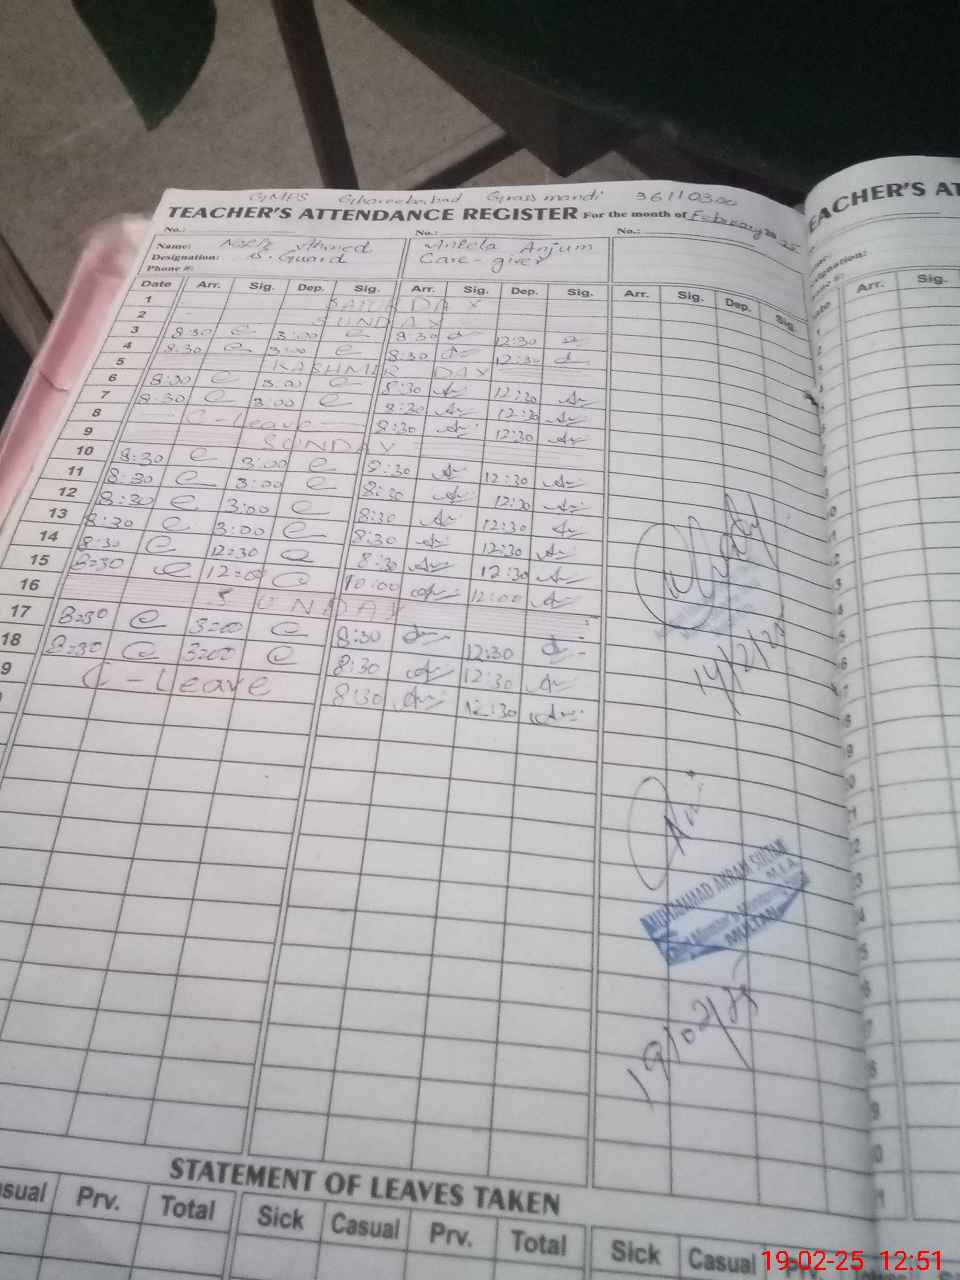 GMPS Ghareebabad Grass mandi 36110300
TEACHER'S ATTENDANCE REGISTER For the month of February 2025
No.: No.: No.:
Name: Ahmed Anjum
Designation: S. Guard Care-giver
Phone #:
Date Arr. Sig. Dep. Sig. Arr. Sig. Dep. Sig. Arr. Sig. Dep. Sig.
1 DAY
2 SUNDAY
3 8:30 3:00 8:30 12:30
4 8:30 3:00 8:30 12:30
5 KASHMIR DAY
6 8:00 3:00 8:30 12:30
7 8:30 3:00 8:30 12:30
8 C-Leave 8:30 12:30
9 SUNDAY
10 8:30 3:00 8:30 12:30
11 8:30 3:00 8:30 12:30
12 8:30 3:00 8:30 12:30
13 8:30 3:00 8:30 12:30
14 8:30 12:30 8:30 12:30
15 8:30 10:00 12:00
16 SUNDAY
17 8:30 3:00 8:30 12:30
18 8:30 3:00 8:30 12:30
9 C-Leave 8:30 12:30
14/2/25
MUHAMMAD AKRAM SULTANI
M.I.A
MULTAN
19/02/25
STATEMENT OF LEAVES TAKEN
Casual Prv. Total Sick Casual Prv. Total Sick Casual
TEACHER'S AT
Designation:
Arr. Sig.
19-02-25 12:51